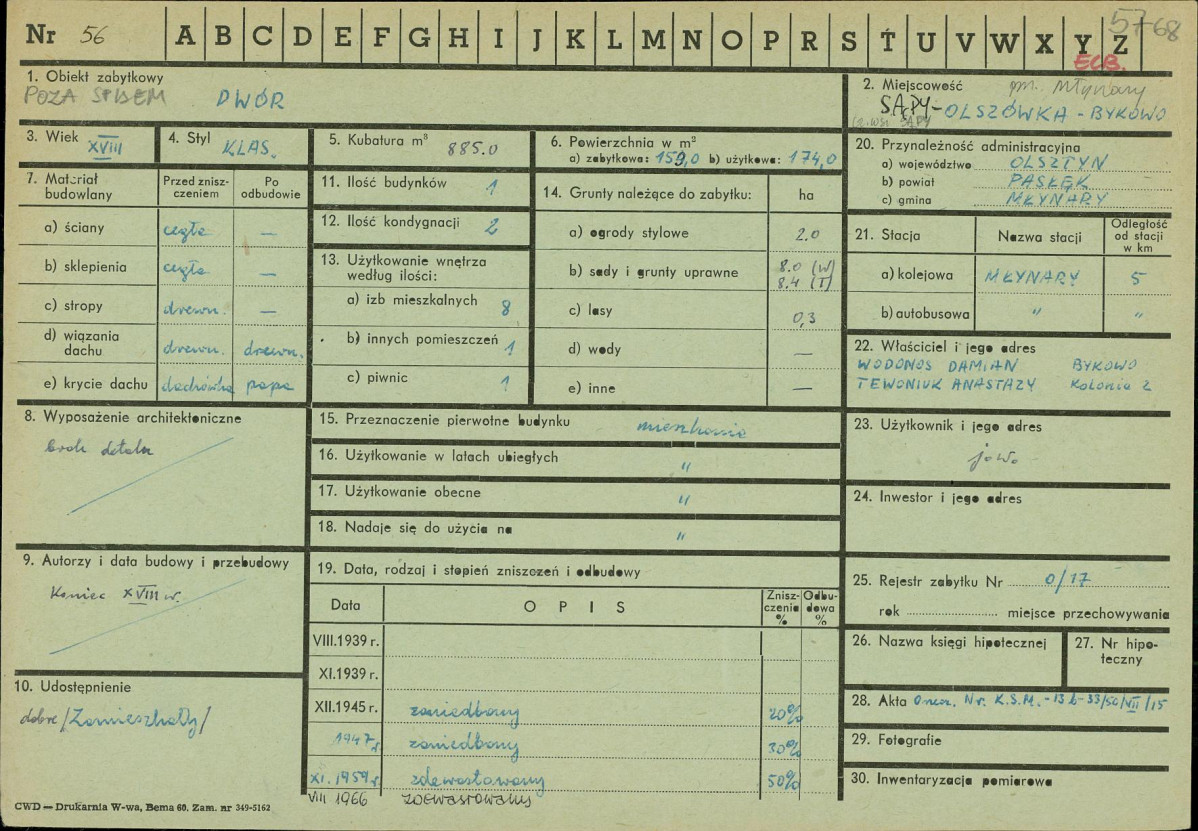 Nr 56 A B C D E F G H I J K L M N O P R S T U V W X Y Z 57-68
ELB.
1. Obiekt zabytkowy
POZA SPISEM DWÓR
2. Miejscowość gm. Młynary
SĄPY-OLSZÓWKA - BYKOWO
3. Wiek XVIII
4. Styl KLAS.
5. Kubatura m³ 885.0
6. Powierzchnia w m²
a) zabytkowa: 159,0 b) użytkowa: 174,0
20. Przynależność administracyjna
a) województwo OLSZTYN
b) powiat PASŁĘK
c) gmina MŁYNARY
7. Materiał budowlany
Przed zniszczeniem
Po odbudowie
a) ściany cegła —
b) sklepienia cegła —
c) stropy drewn. —
d) wiązania dachu drewn. drewn.
e) krycie dachu dachówka papa
11. Ilość budynków 1
12. Ilość kondygnacji 2
13. Użytkowanie wnętrza
według ilości:
a) izb mieszkalnych 8
b) innych pomieszczeń 1
c) piwnic 1
14. Grunty należące do zabytku: ha
a) ogrody stylowe 2.0
b) sady i grunty uprawne 8.0 (W)
8.4 (T)
c) lasy 0,3
d) wody —
e) inne —
21. Stacja
Nazwa stacji
Odległość
od stacji
w km
a) kolejowa MŁYNARY 5
b) autobusowa " "
22. Właściciel i jego adres
WODONOS DAMIAN BYKOWO
TEWONIUK ANASTAZY Kolonia 2
8. Wyposażenie architektoniczne
brak detalu
15. Przeznaczenie pierwotne budynku mieszkanie
16. Użytkowanie w latach ubiegłych "
17. Użytkowanie obecne "
18. Nadaje się do użycia na "
23. Użytkownik i jego adres
j.w.
24. Inwestor i jego adres
9. Autorzy i data budowy i przebudowy
Koniec XVIII w.
19. Data, rodzaj i stopień zniszczeń i odbudowy
Data
OPIS
Zniszczenia %
Odbudowa %
VIII.1939 r.
XI.1939 r.
XII.1945 r. zaniedbany 20%
1947 r. zaniedbany 30%
XI. 1959 r. zdewastowany 50%
VIII 1966 zdewastowany
25. Rejestr zabytku Nr 0/17
rok miejsce przechowywania
26. Nazwa księgi hipotecznej
27. Nr hipoteczny
10. Udostępnienie
dobre /Zamieszkały/
28. Akta Nr. K.S.M.-13 b-33/50/VII/15
29. Fotografie
30. Inwentaryzacja pomiarowa
CWD — Drukarnia W-wa, Bema 60. Zam. nr 349-5162